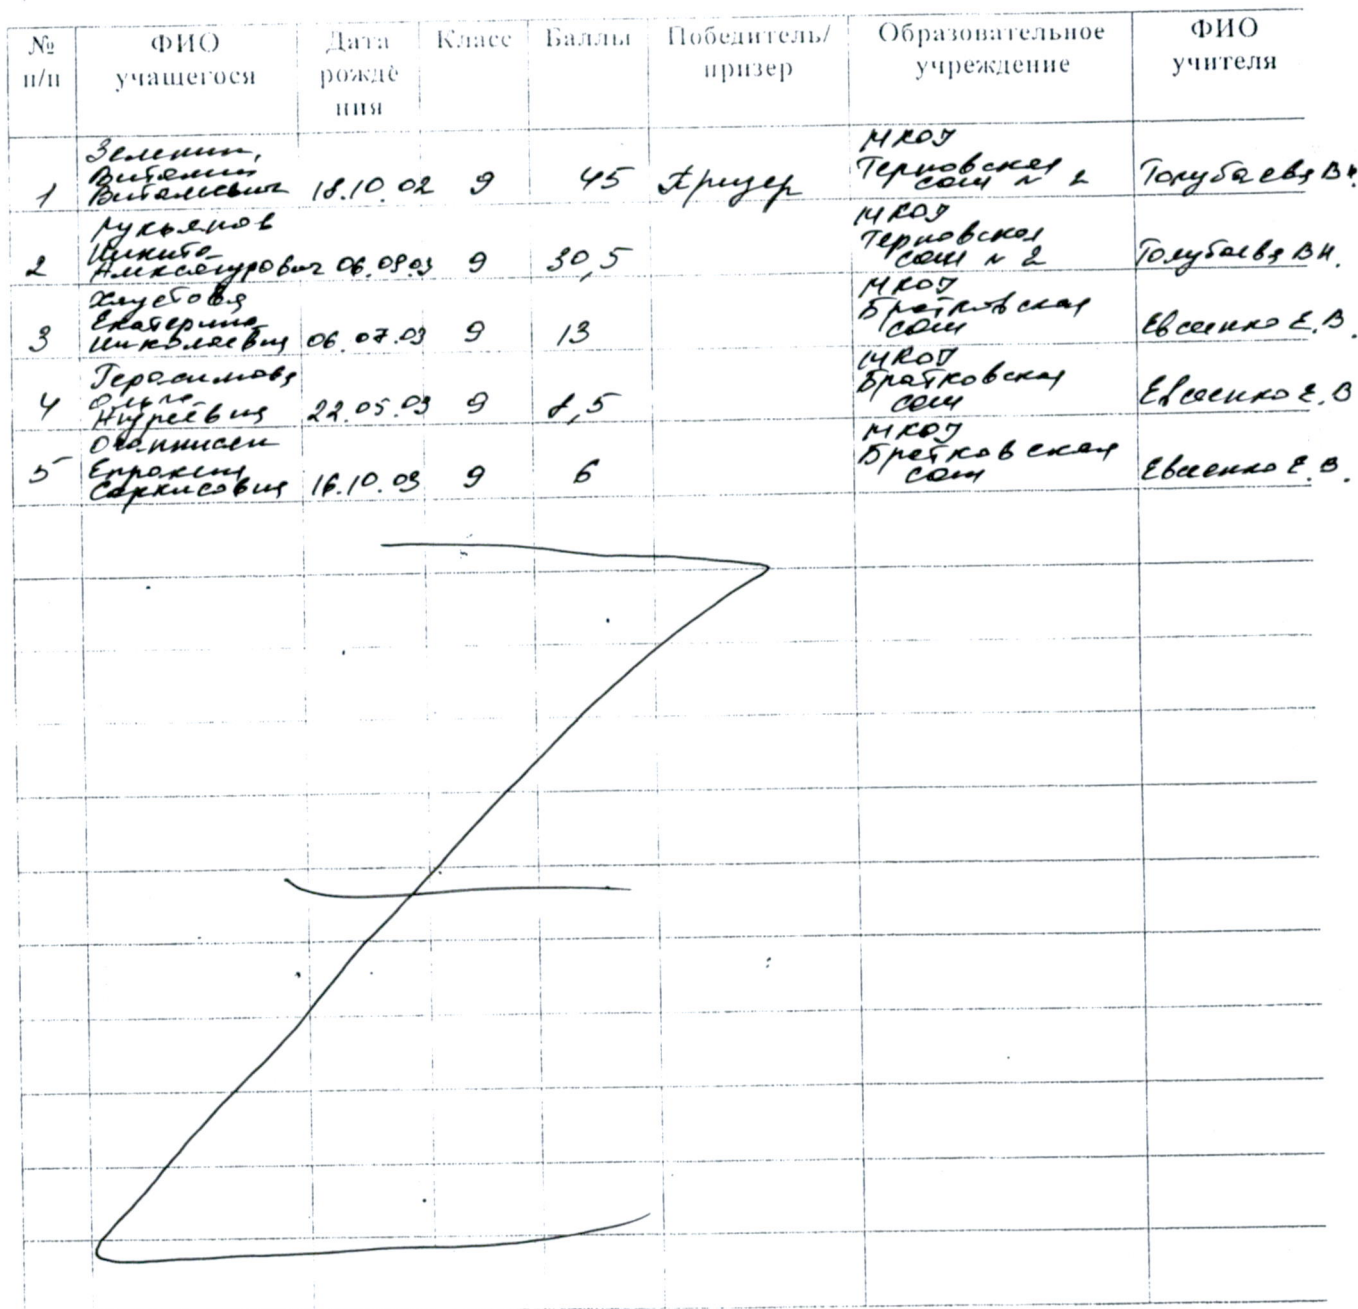 № п/п ФИО учащегося Дата рожде ния Класс Баллы Победитель/ призер Образовательное учреждение ФИО учителя
1 Зеленин, Виталий Витальевич 18.10.02 9 45 Призер МКОУ Терновская сош № 2 Голубаева В.Н.
2 Лукьянов Никита Александрович 06.09.03 9 30,5 МКОУ Терновская сош № 2 Голубаева В.Н.
3 Хлустова Екатерина Николаевна 06.07.03 9 13 МКОУ Братковская сош Евсеенко Е.В.
4 Герасимова Ольга Андреевна 22.05.03 9 8,5 МКОУ Братковская сош Евсеенко Е.В.
5 Оганнисян Епраксия Саркисовна 16.10.03 9 6 МКОУ Братковская сош Евсеенко Е.В.